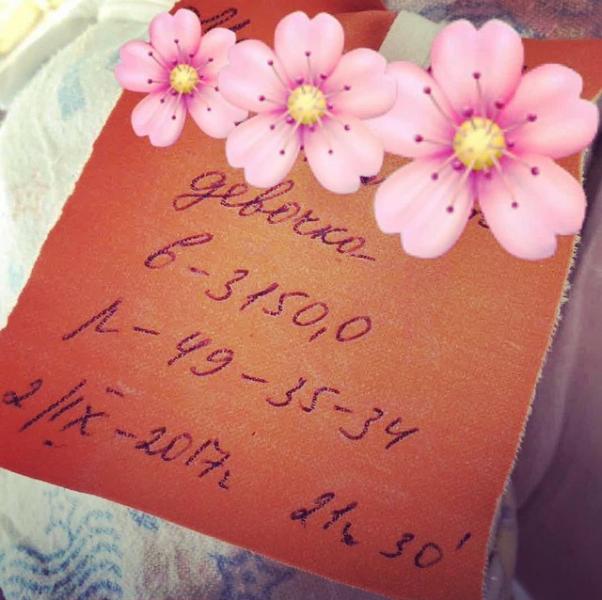 девочка
в-3150,0
р-49-35-34
2/IX-2017г. 21ч 30'